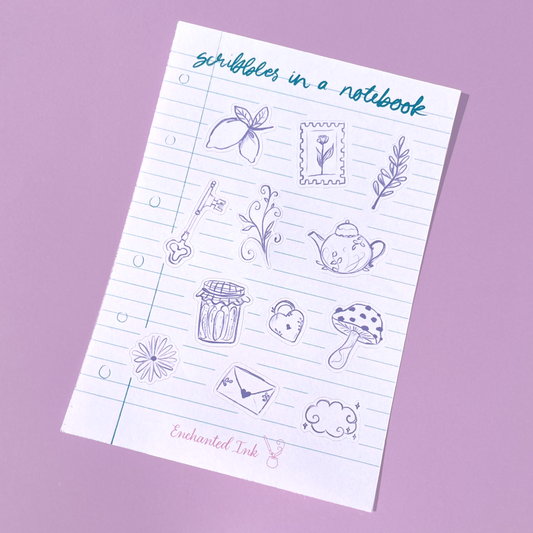 scribbles in a notebook
Enchanted Ink